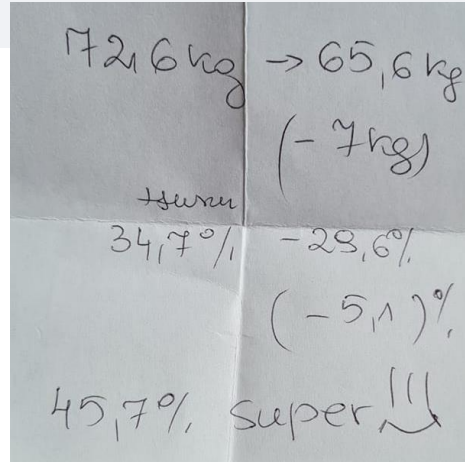 72,6 kg → 65,6 kg
(- 7kg)
34,7% -29,6%
(-5,1)%
45,7% super!!!